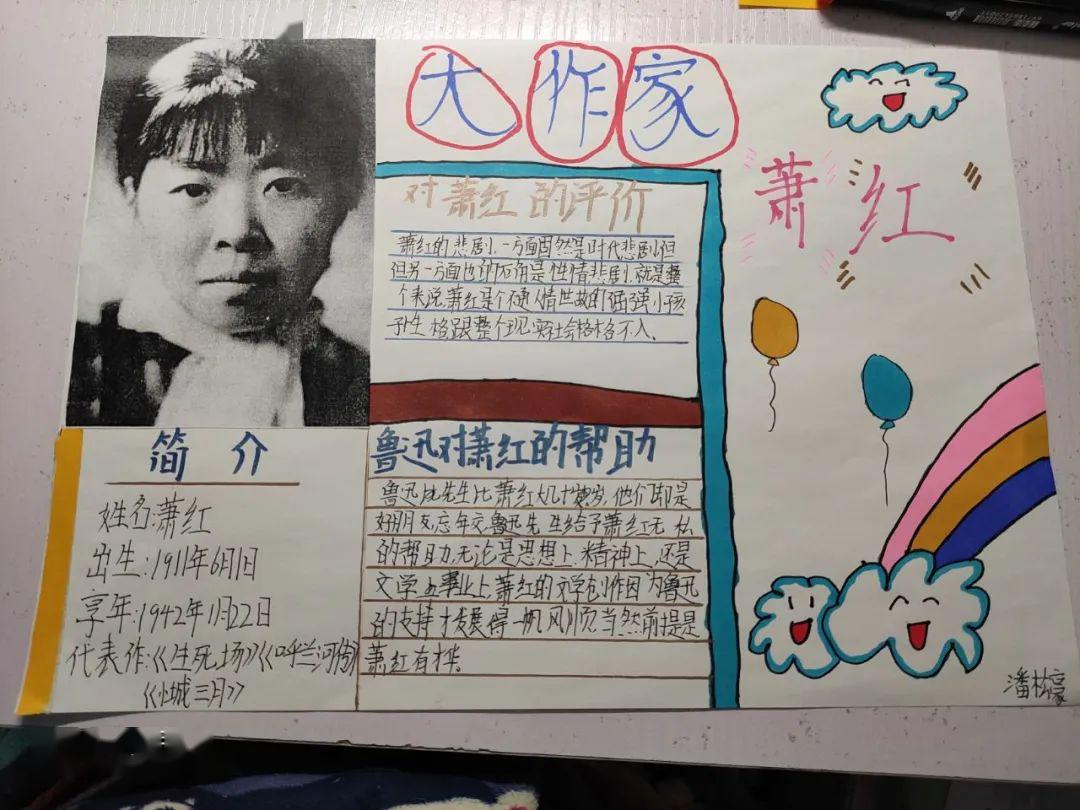 大作家
萧红
对萧红的评价
萧红的悲剧,一方面固然是时代悲剧但
但另一方面也的是性情悲剧,就是整
个来说,萧红是个不通人情世故的倔强小孩
子性格跟整个现实社会格格不入.
简介
姓名:萧红
出生:1911年6月1日
享年:1942年1月22日
代表作:《生死场》《呼兰河传》
《小城三月》
鲁迅对萧红的帮助
鲁迅先生比萧红大几十岁,他们却是
好朋友忘年交,鲁迅先生给予萧红无私
的帮助,无论是思想上.精神上,还是
文学事业上,萧红的文学创作因为鲁迅
的支持才发展得一帆风顺,当然前提是
萧红有才华
潘